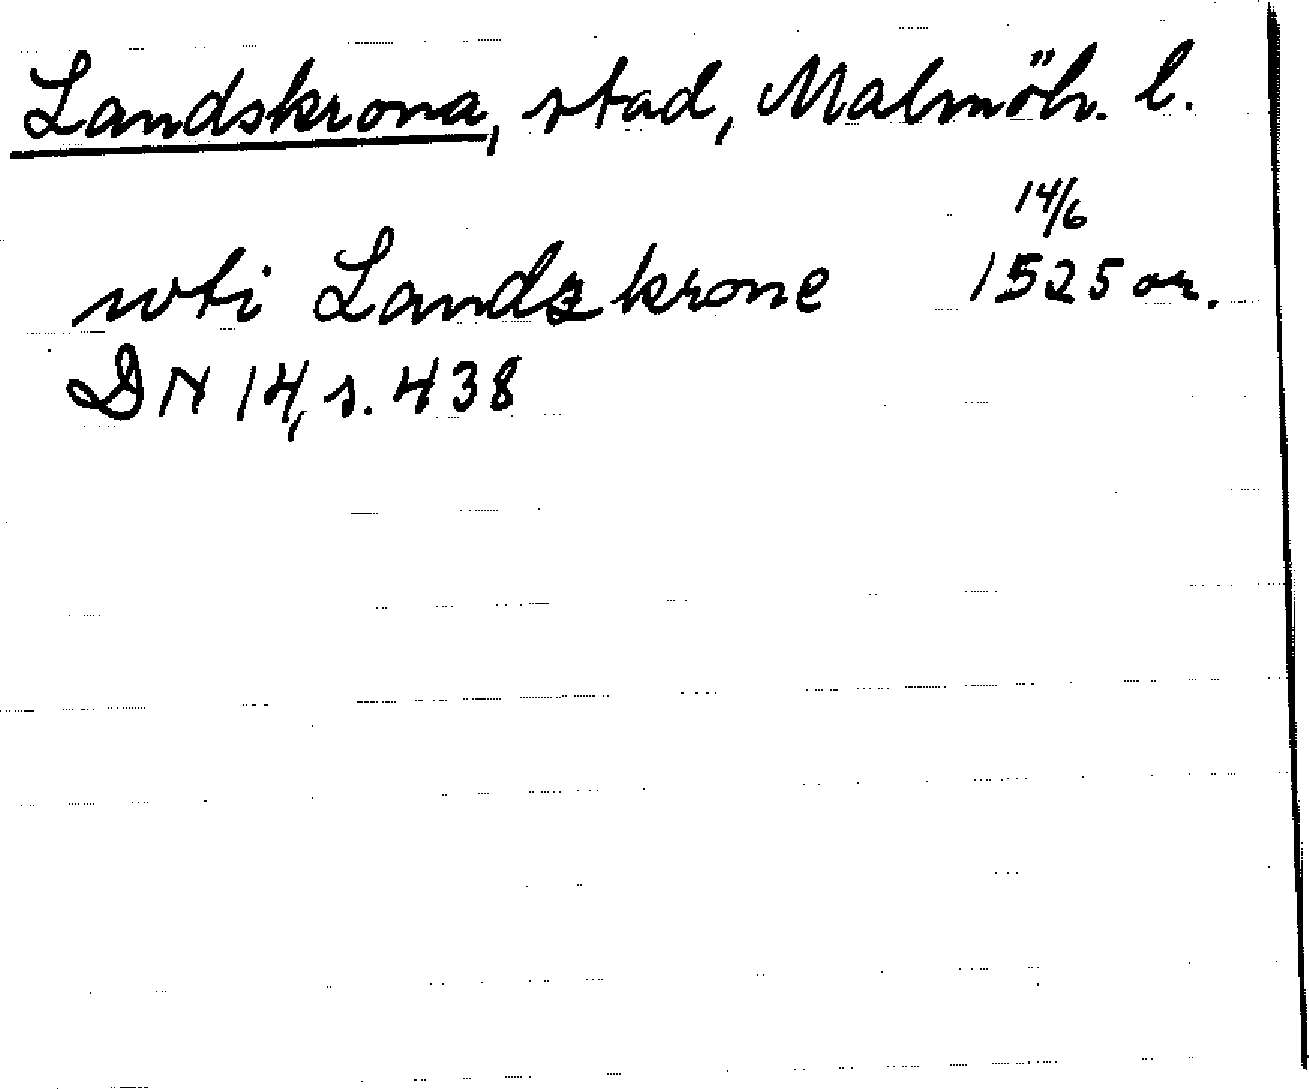 Landskrona, stad, Malmöh. l.
14/6
wti Landzkrone 1525 or.
DN 14, s. 438